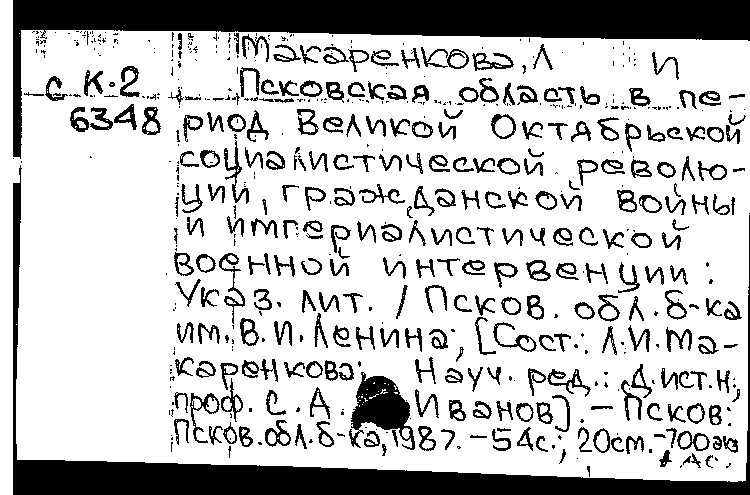 Макаренкова, Л И
с К.2
Псковская область в пе-
6348
риод Великой Октябрьской
социалистической револю-
ции, гражданской войны
и империалистической
военной интервенции:
Указ. лит. / Псков. обл. б-ка
им. В.И. Ленина; [Сост.: Л.И. Ма-
каренкова; Науч. ред.: Д. ист. н.,
проф. С.А. Иванов]. — Псков:
Псков. обл. б-ка, 1987. — 54с.; 20см. — 700 экз